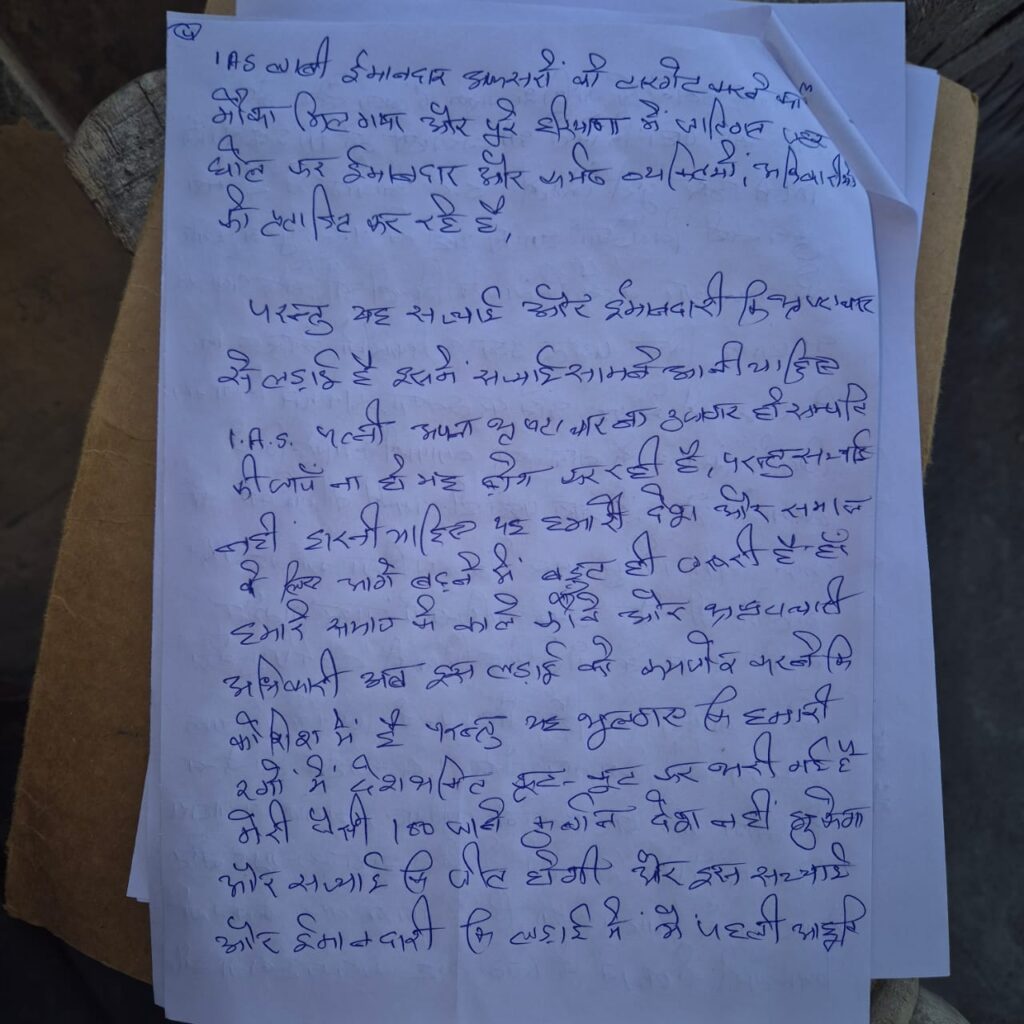 4
IAS लाबी ईमानदार अफसरों को टारगेट करने का
मौका मिल गया और पूरे हरियाणा में जातिगत जहर
घोल कर ईमानदार और कर्मठ व्यक्तियों, अधिकारीयों
को प्रताड़ित कर रहे है,
परन्तु यह सच्चाई और ईमानदारी कि भ्रष्टाचार
से लड़ाई है इसमें सच्चाई सामने आनी चाहिए
I.A.S. पत्नी अपना भ्रष्टाचार का उजागर हो सम्पति
की जाँच ना हो यह ढोंग कर रही है, परन्तु सच्चाई
नही हारनी चाहिए यह हमारे देश और समाज
के लिए आगे बढ़ने में बहुत ही जरूरी है
हमारे समाज के काले कौवे और भ्रष्टाचारी
अधिकारी अब इस लड़ाई को कमजोर करने कि
कोशिश में है परन्तु यह भुलगए कि हमारी
रगों में देशभक्ति कूट-कूट कर भरी गई है
मेरी जैसी 100 जाने कुर्बान देश नहीं झुकेगा
और सच्चाई कि जीत होगी और इस सच्चाई
और ईमानदारी कि लड़ाई में मैं पहली आहुति